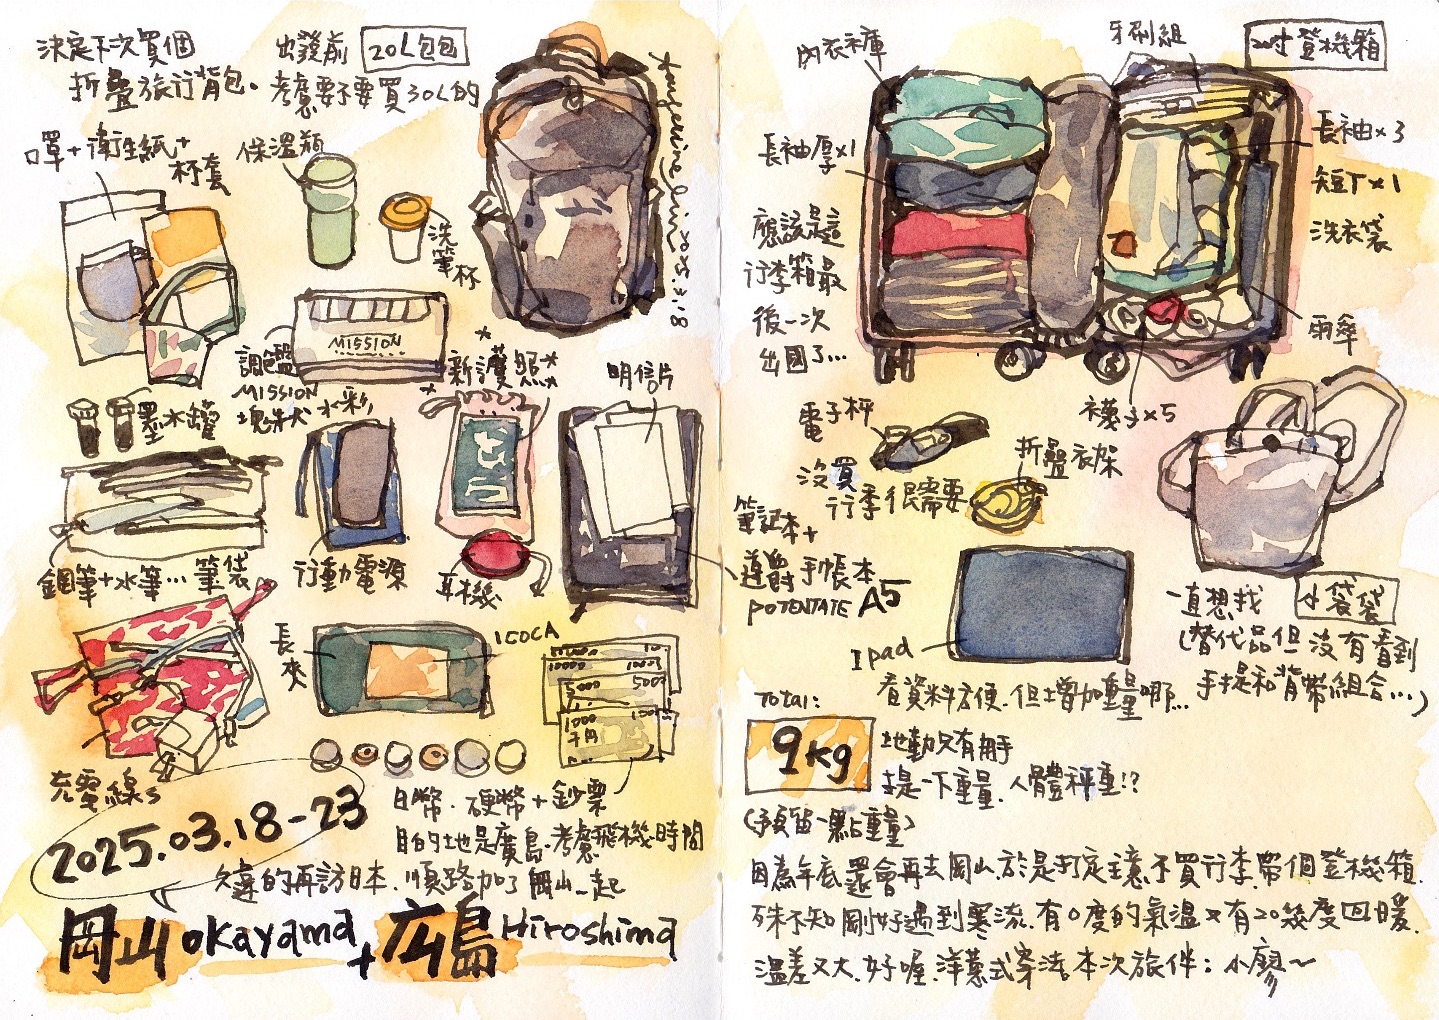 決定下次買個
折疊旅行背包。
出發前 20L包包
考慮要不要買30L的
口罩+衛生紙+
杯套
保溫瓶
洗筆杯
2025.3.18
調色盤
MISSION
塊狀水彩
MISSION
新護照
明信片
墨水罐
鋼筆+水筆…筆袋
行動電源
耳機
筆記本+
導爵手帳本
POTENTATE A5
長夾
ICOCA
10000
5000
1000
千円
充電線s
日幣.硬幣+鈔票
目的地是廣島.考慮飛機時間
2025.03.18-23
久違的再訪日本.順路加了岡山一起
岡山 okayama + 広島 Hiroshima
內衣褲庫
牙刷組
20吋登機箱
長袖厚x1
長袖x3
短Tx1
洗衣袋
雨傘
應該是這
行李箱最
後一次
出國了…
襪子x5
電子秤
沒買
行李很需要
折疊衣架
Ipad
看資料方便.但增加重量哪…
一直想找 小袋袋
(替代品但沒有看到
手提和背帶組合…)
Total:
9kg
地勤只有用手
提一下重量.人體秤重!?
(預留一點重量)
因為年底還會再去岡山.於是打定主意不買行李.帶個登機箱.
殊不知剛好遇到寒流.有0度的氣溫又有20幾度回暖.
溫差又大.好喔.洋蔥式穿法.本次旅伴:小廖~